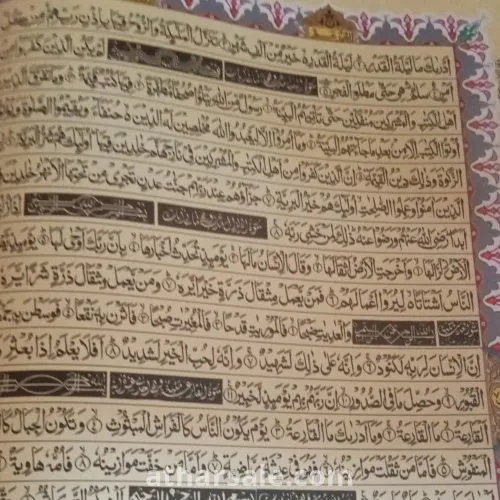 ادريك ما ليلة القدر ليلة القدر خير من الف شهر تنزل الملئكة والروح فيها باذن ربهم من كل
امر سلام هي حتى مطلع الفجر لم يكن الذين كفروا من
اهل الكتب والمشركين منفكين حتى تاتيهم البينة رسول من الله يتلوا صحفا مطهرة فيها كتب قيمة وما تفرق الذين
اوتوا الكتب الا من بعد ما جاءتهم البينة وما امروا الا ليعبدوا الله مخلصين له الدين حنفاء ويقيموا الصلوة ويؤتوا
الزكوة وذلك دين القيمة ان الذين كفروا من اهل الكتب والمشركين في نار جهنم خلدين فيها اولئك هم شر البرية
الذين امنوا وعملوا الصلحت اولئك هم خير البرية جزاؤهم عند ربهم جنت عدن تجري من تحتها الانهر خلدين
ابدا رضي الله عنهم ورضوا عنه ذلك لمن خشي ربه اذا زلزلت
الارض زلزالها واخرجت الارض اثقالها وقال الانسان ما لها يومئذ تحدث اخبارها بان ربك اوحى لها يومئذ يصدر
الناس اشتاتا ليروا اعمالهم فمن يعمل مثقال ذرة خيرا يره ومن يعمل مثقال ذرة شرا يره
والعديت ضبحا فالموريت قدحا فالمغيرت صبحا فاثرن به نقعا فوسطن به جمعا
ان الانسان لربه لكنود وانه على ذلك لشهيد وانه لحب الخير لشديد افلا يعلم اذا بعثر ما في
القبور وحصل ما في الصدور ان ربهم بهم يومئذ لخبير
القارعة ما القارعة وما ادريك ما القارعة يوم يكون الناس كالفراش المبثوث وتكون الجبال كالعهن
المنفوش فاما من ثقلت موازينه فهو في عيشة راضية واما من خفت موازينه فامه هاوية
atharsale.com